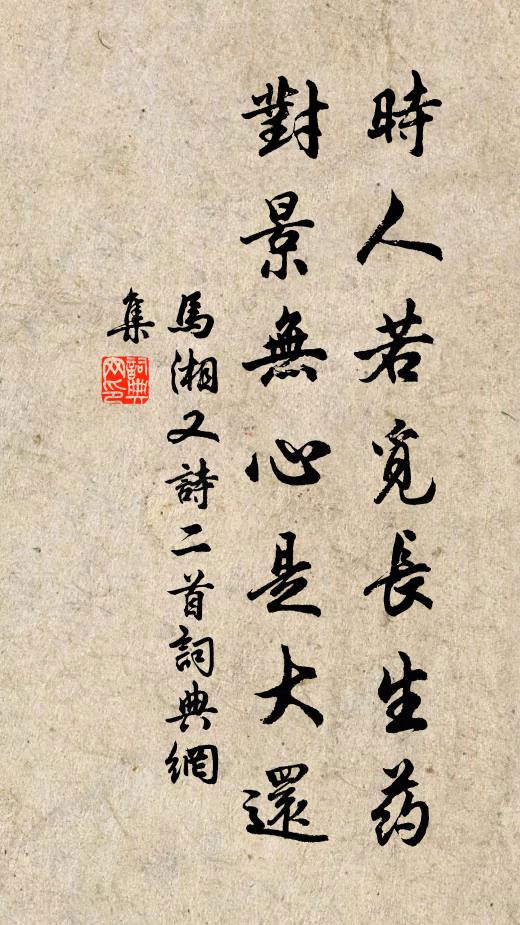 時人若覓長生药
對景無心是大還
馬湘又詩二首詞典網
集
詞典网印